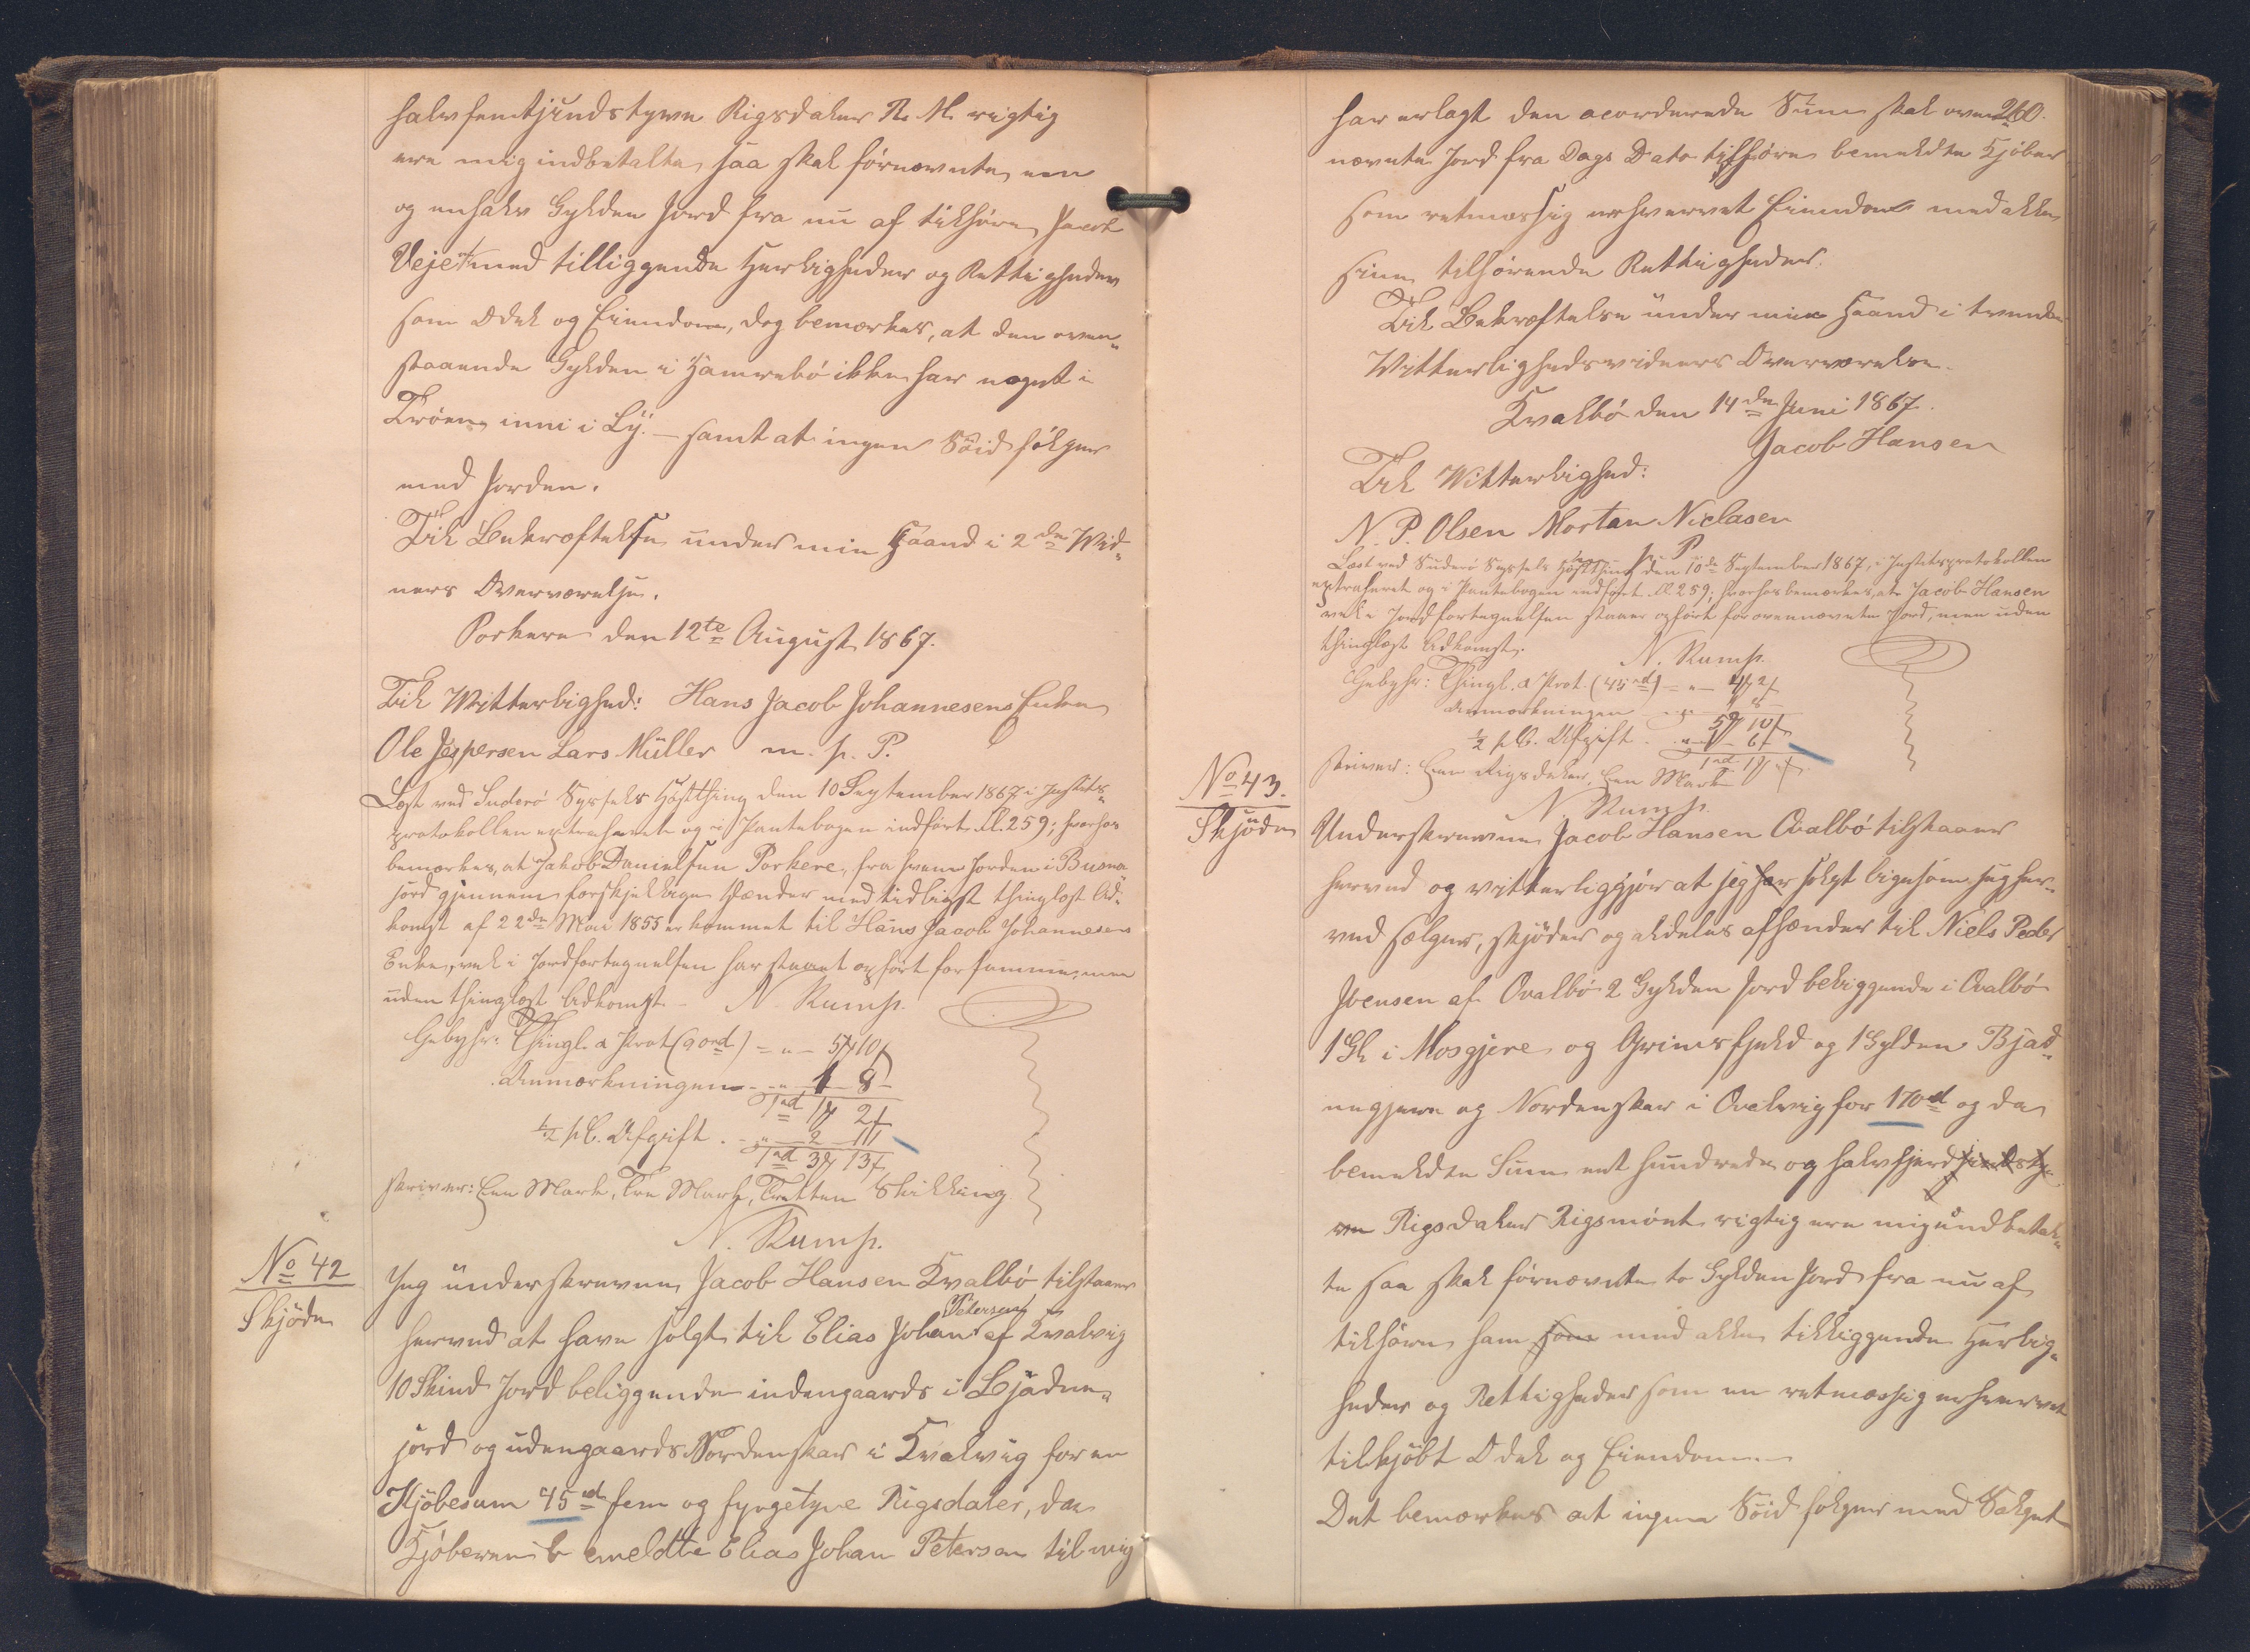 halvfemtsindstyve Rigsdaler R. M. rigtig
ere mig indbetalte, saa skal førnævnte, een
og enhalv Gylden Jord fra nu af tilhøre Jacob
Vejet med tilliggende Herligheder og Rettigheder
som Odel og Eiendom, dog bemærkes, at den oven-
staaende Gylden i Hamrebø ikke har noget i
Trøene inni i Ly. – samt at ingen Søid følger
med Jorden.
Til Bekræftelse under min Haand i 2de Vid-
ners Overværelse.
Porkere den 12te August 1867.
Til Vitterlighed: Hans Jacob Johannesens Enke
Ole Jespersen Lars Müller m. p. P.
Læst ved Suderø Syssels Høstthing den 10 September 1867 i Justits-
protokollen extraheret og i Pantebogen indført Fl. 259; hvorhos
bemærkes, at Jakob Danielsen Porkere, fra hvem Jorden i Busma
jørd gjennem forskjellige Hænder med tidligst thinglæst Ad-
komst af 22de Mai 1855 er kommet til Hans Jacob Johannesens
Enke, vel i Jordfortegnelsen har staaet opført for samme, men
uden thinglæst Adkomst. N. Rump.
Gebyhr: Thingl. a Prot (90rd) = " – 5 10
Anmærkningen – " – 1 8 –
1rd 1 2
½ pC. Afgift. – " – 2 11
1rd 3 13
skriver: Een Mark, Tre Mark, Tretten Skilling
N. Rump.
No 42
Skjøde
Jeg underskrevne Jacob Hansen Kvalbø tilstaaer
Petersen
herved at have solgt til Elias Johan af Kvalvig
10 Skind Jord beliggende indengaards i Bjadne-
jørd og udengaards Nordenskar i Kvalvig for en
Kjøbesum 45rd fem og fyrgetyve Rigsdaler, da
Kjøberen bemeldte Elias Johan Petersen til mig
260.
har erlagt den acorderede Sum skal oven
nævnte Jord fra Dags Dato tilhøre bemeldte Kjøber
som retmæssig erhvervet Eiendom med alle
sine tilhørende Rettigheder.
Til Bekræftelse under min Haand i tvende
Vitterlighedsvidners Overværelse.
Kvalbø den 14de Juni 1867.
Jacob Hansen
Til Vitterlighed:
N. P. Olsen Morten Niclasen
Læst ved Suderø Syssels Høstthing den 10de September 1867, i Justitsprotokollen
extraheret og i Pantebogen indført Fl. 259; hvorhos bemærkes, at Jacob Hansen
vel i Jordfortegnelsen staaer opført for ovennævnte Jord, men uden
thinglæst Adkomst.
N. Rump.
Gebyhr: Thingl. a Prot. (45rd) = " – 4 2
Anmærkningen – " – 1 8 –
5 10
½ pC. Afgift. " – 1 – 6
1rd 1
skriver: Een Rigsdaler, Een Mark
N. Rump.
No 43.
Skjøde
Underskrevne Jacob Hansen Qvalbø tilstaaer
herved og vitterliggjør at jeg har solgt ligesom jeg her-
ved sælger, skjøder og aldeles afhænder til Niels Peder
Joensen af Qvalbø 2 Gylden Jord beliggende i Qvalbø
1 Gl. i Mosgjere og Grimsfjeld og 1 Gylden Bjad-
negjære og Nordenskar i Qvalvig for 170rd og da
bemeldte Sum eet hundrede og halvfjerdsindsty-
ve Rigsdaler Rigsmønt rigtig ere mig indbetal-
te saa skal førnævnte to Gylden Jord fra nu af
tilhøre ham som med alle tilliggende Herlig-
heder og Rettigheder som en retmæssig erhvervet
tilkjøbt Odel og Eiendom.
Det bemærkes at ingen Søid følger med Salget